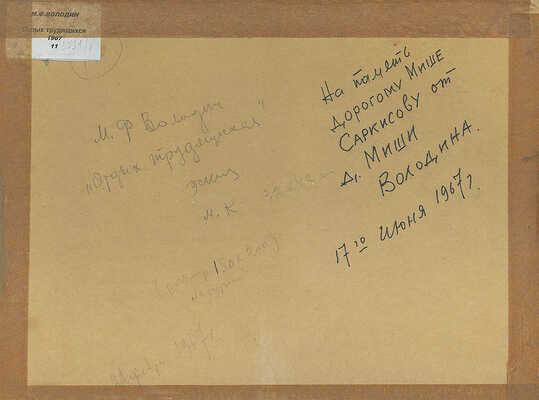 М.Ф.ВОЛОДИН
Отдых трудящихся
1967
11
М. Ф Володин
„Отдых трудящихся"
эскиз
м. к
На память
Дорогому Мише
Саркисову от
Д. Миши
Володина.
17го июня 1967г.
1967г